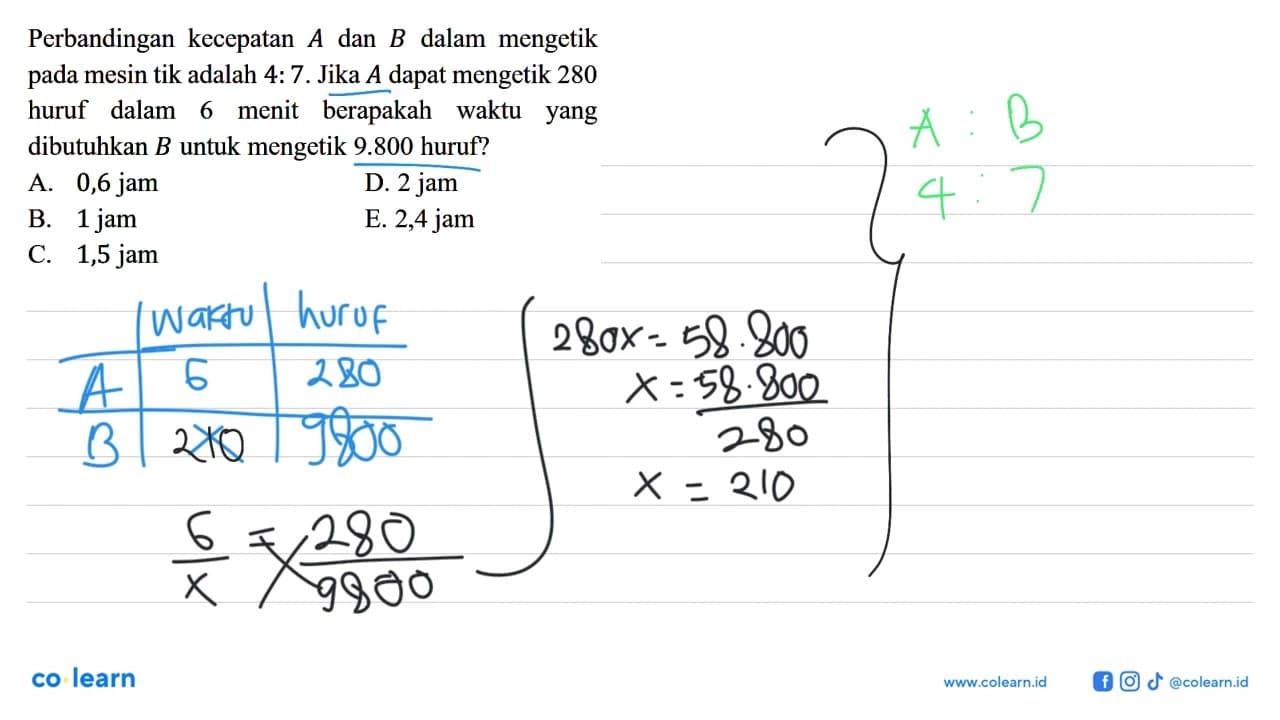 Perbandingan kecepatan A dan B dalam mengetik
pada mesin tik adalah 4: 7. Jika A dapat mengetik 280
huruf dalam 6 menit berapakah waktu yang
dibutuhkan B untuk mengetik 9.800 huruf?
A. 0,6 jam D. 2 jam
B. 1 jam E. 2,4 jam
C. 1,5 jam
waktu huruf
A 6 280
B 210 9800
6/x = 280/9800
280x = 58.800
x = 58.800/280
x = 210
A : B
4 : 7
co learn
www.colearn.id
@colearn.id